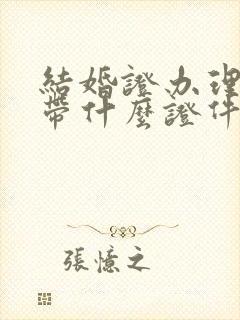 結婚證办理
帶什麼證件
張憶之